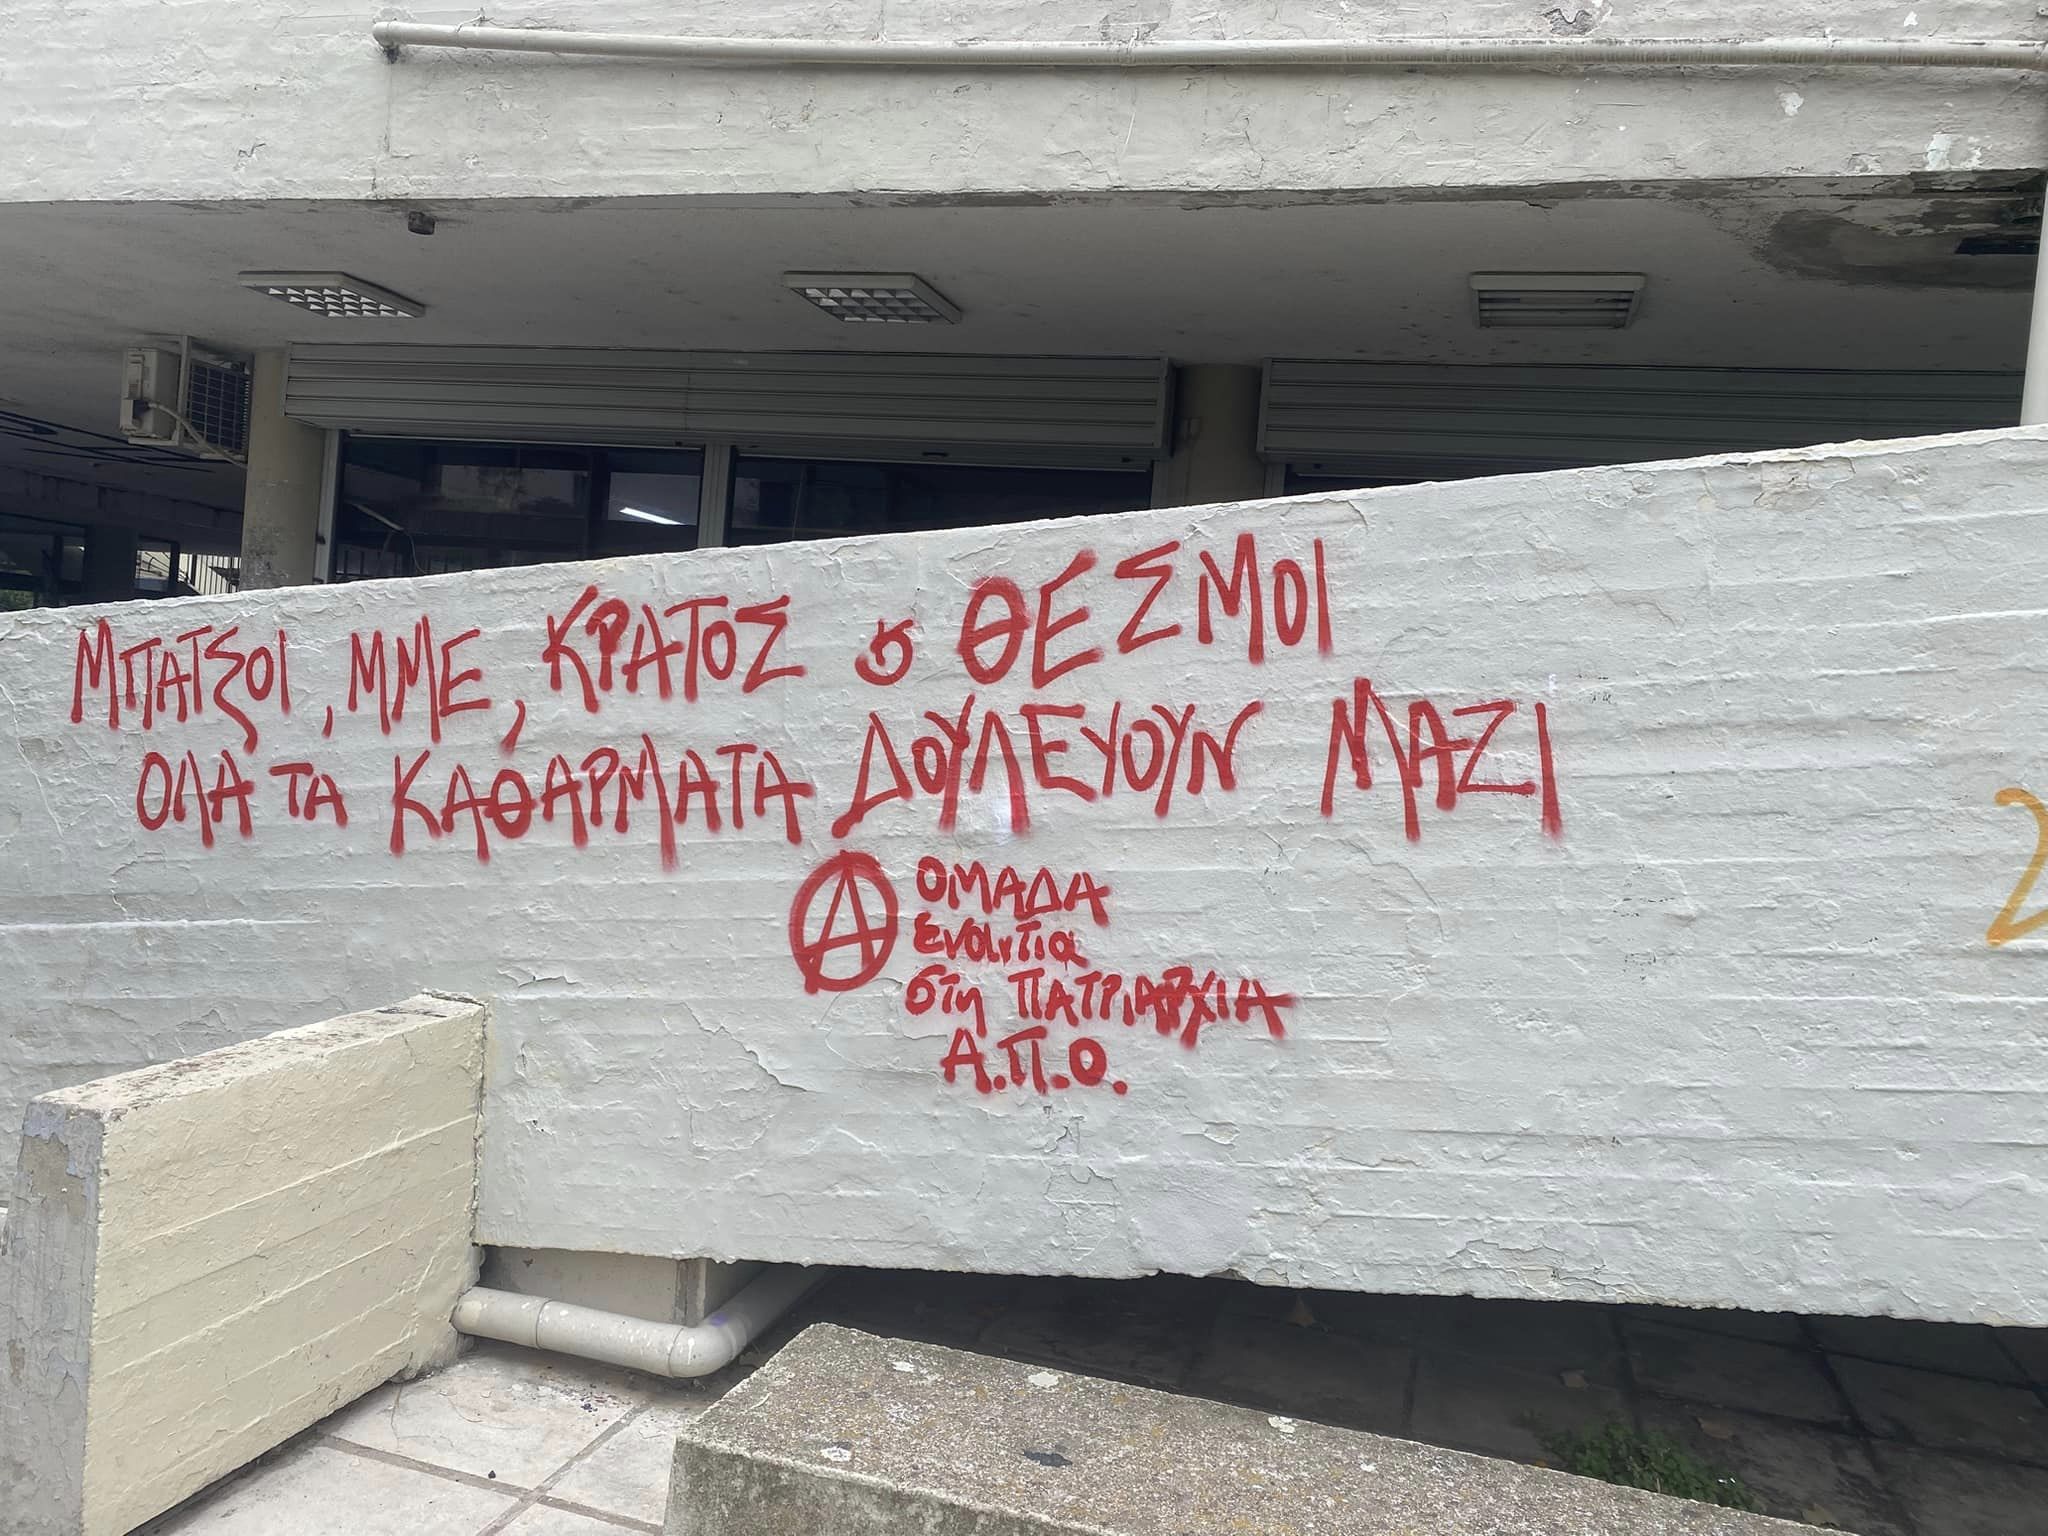 ΜΠΑΤΣΟΙ, ΜΜΕ, ΚΡΑΤΟΣ & ΘΕΣΜΟΙ
ΟΛΑ ΤΑ ΚΑΘΑΡΜΑΤΑ ΔΟΥΛΕΥΟΥΝ ΜΑΖΙ
Ⓐ ΟΜΑΔΑ
εναντια
στη ΠΑΤΡΙΑΡΧΙΑ
Α.Π.Θ.